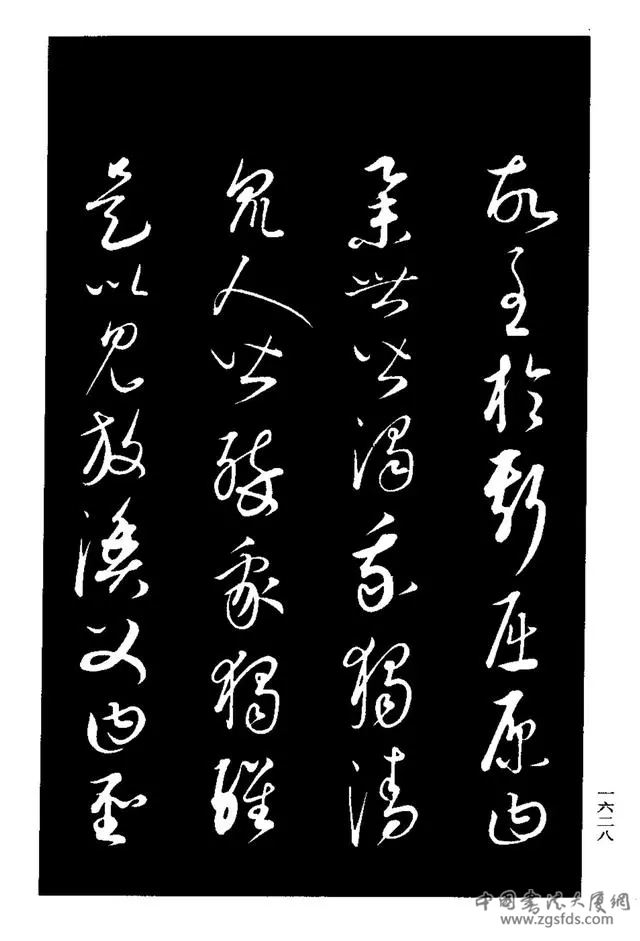 故至於斯屈原曰
舉世皆濁我獨清
眾人皆醉我獨醒
是以見放漁父曰聖
一六二八
中国书法大厦網
www.zgsfds.com